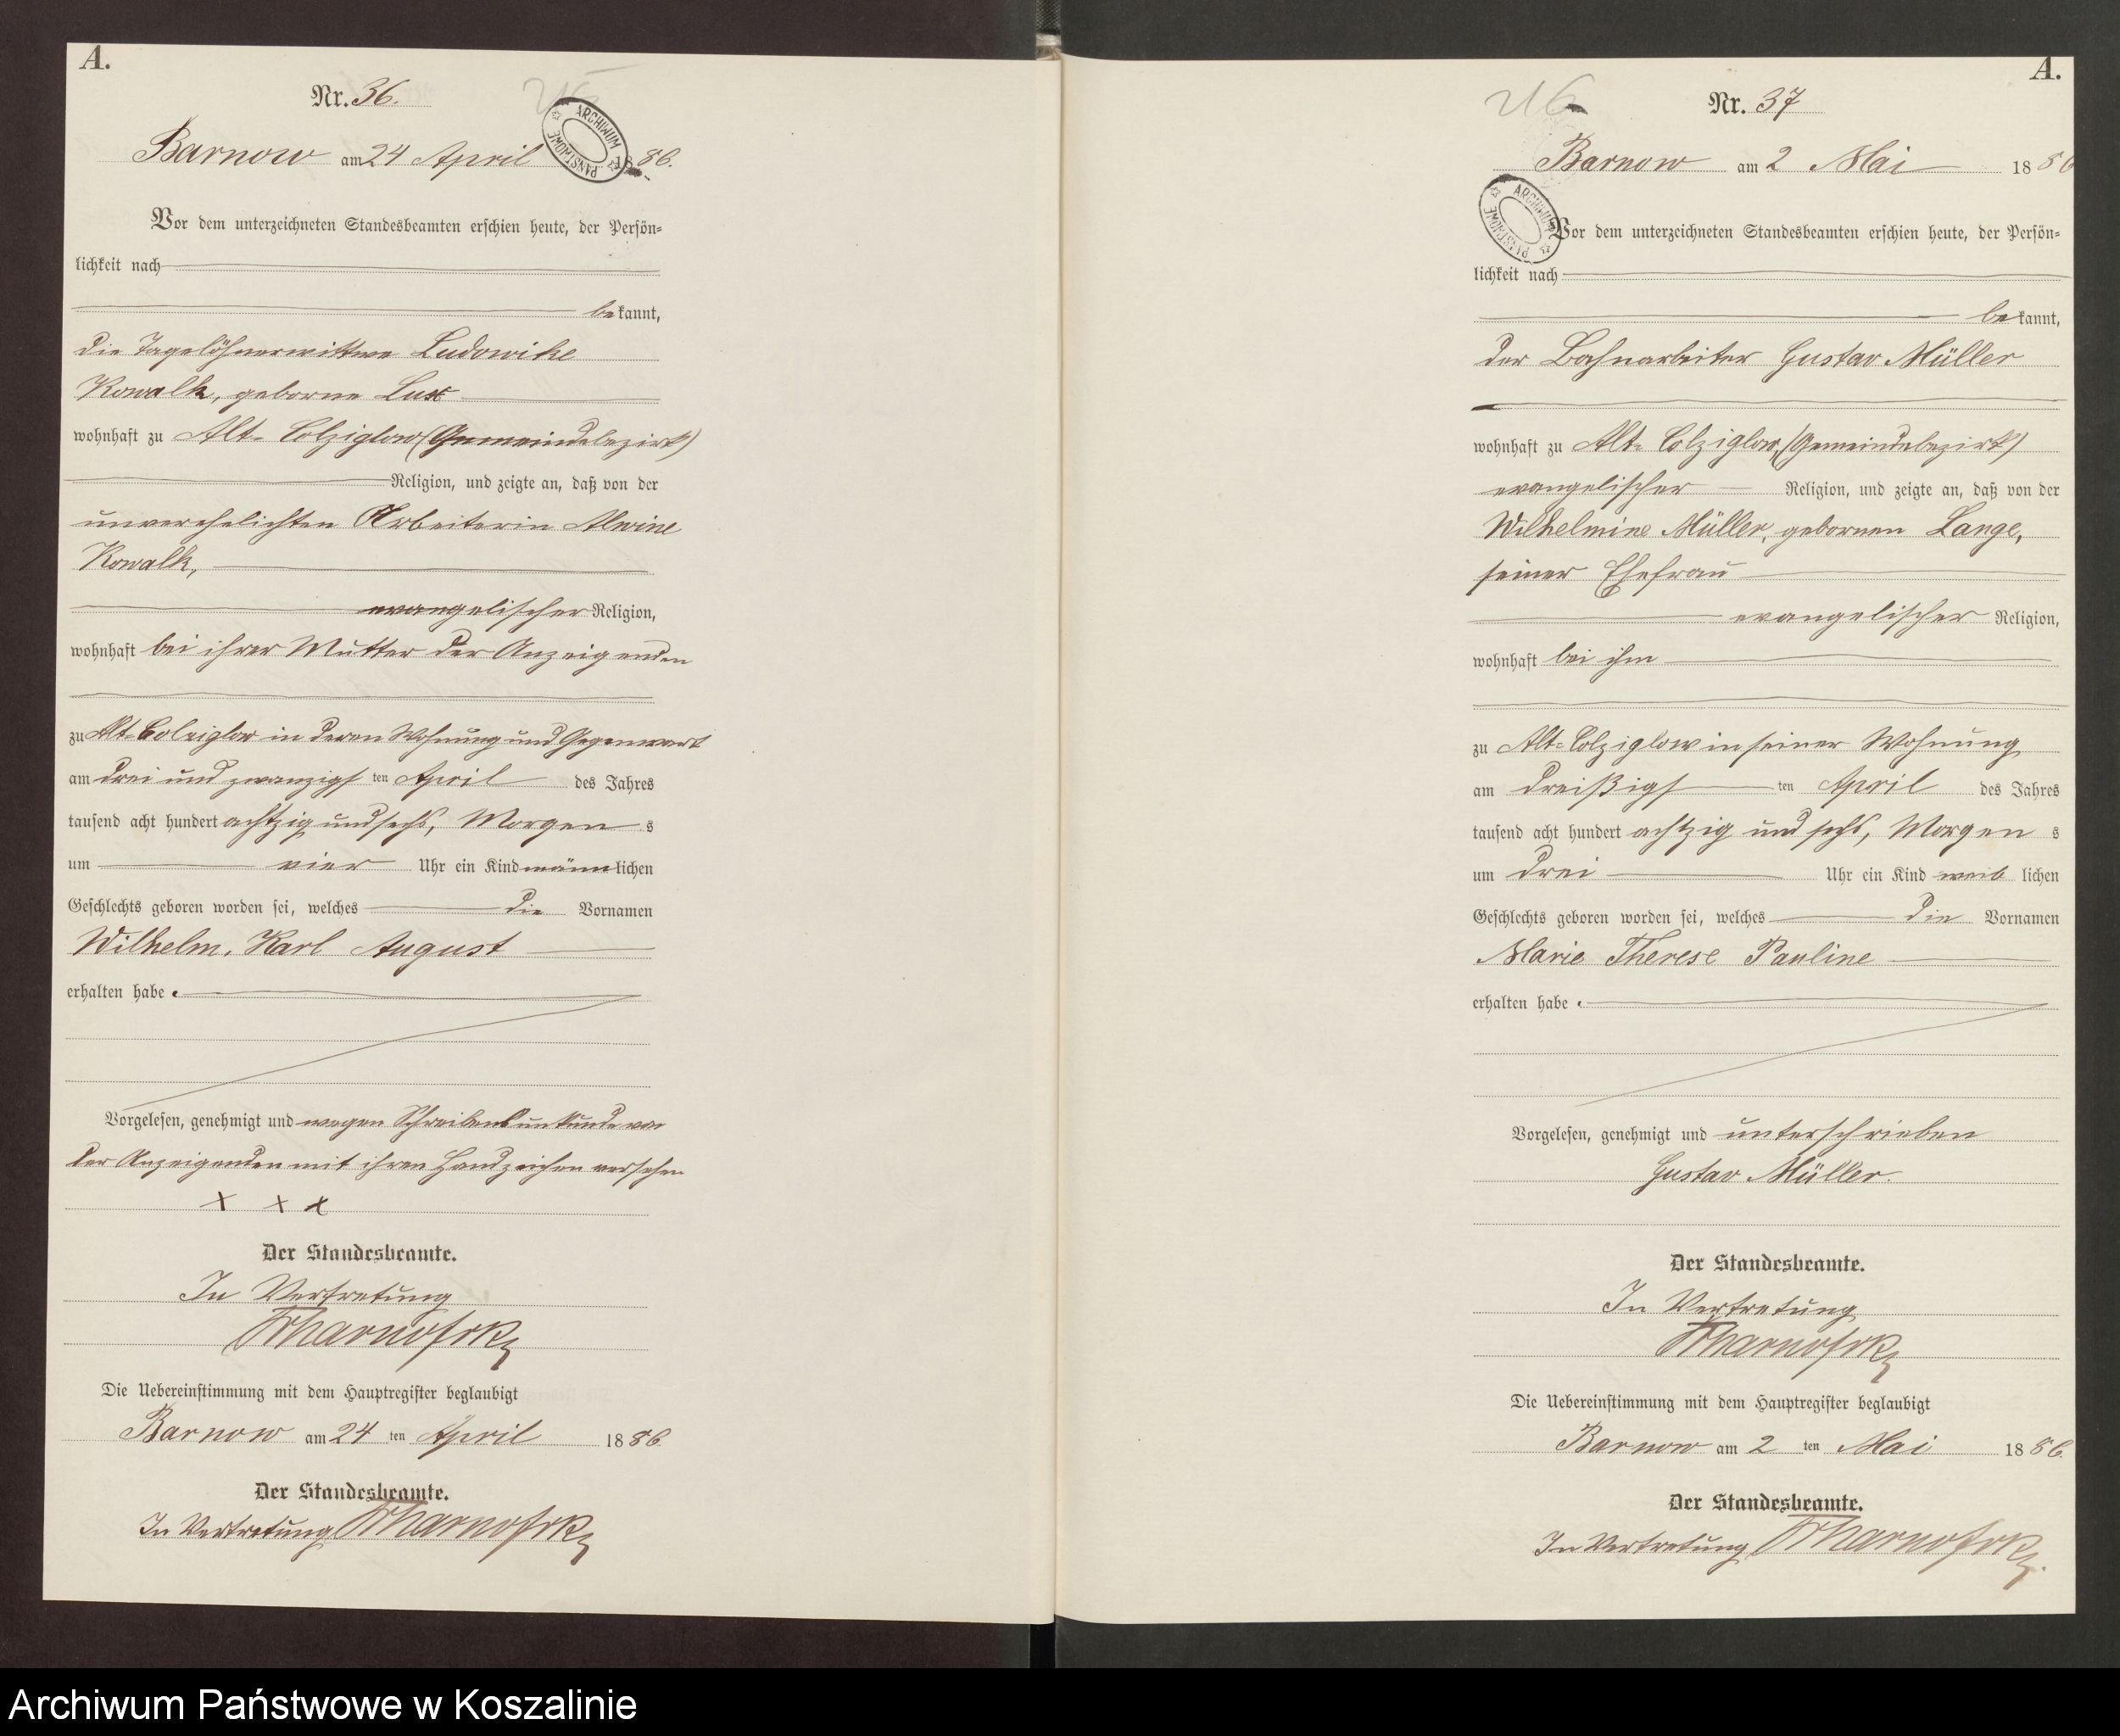 A.
Nr. 36.
ARCHIWUM PAŃSTWOWE
Barnow am 24 April 1886.
Vor dem unterzeichneten Standesbeamten erschien heute, der Persön=
lichkeit nach
bekannt,
die Tagelöhnerwittwe Ludowike
Kowalk, geborne Lux
wohnhaft zu Alt-Colziglow (Gemeindebezirk)
Religion, und zeigte an, daß von der
unverehelichten Arbeiterin Alwine
Kowalk,
evangelischer Religion,
wohnhaft bei ihrer Mutter der Anzeigenden
zu Alt-Colziglow in deren Wohnung und Gegenwart
am drei und zwanzigsten April des Jahres
tausend acht hundert achtzig und sechs, Morgens
um vier Uhr ein Kind männlichen
Geschlechts geboren worden sei, welches die Vornamen
Wilhelm, Karl August
erhalten habe.
Vorgelesen, genehmigt und wegen Schreibensunkunde von
der Anzeigenden mit ihren Handzeichen versehen
x x x
Der Standesbeamte.
In Vertretung
Die Uebereinstimmung mit dem Hauptregister beglaubigt
Barnow am 24 ten April 1886.
Der Standesbeamte.
In Vertretung
A.
216
Nr. 37
Barnow am 2 Mai 1886
ARCHIWUM PAŃSTWOWE
Vor dem unterzeichneten Standesbeamten erschien heute, der Persön=
lichkeit nach
bekannt,
der Bahnarbeiter Gustav Müller
wohnhaft zu Alt-Colziglow, (Gemeindebezirk)
evangelischer Religion, und zeigte an, daß von der
Wilhelmine Müller, gebornen Lange,
seiner Ehefrau
evangelischer Religion,
wohnhaft bei ihm
zu Alt-Colziglow in seiner Wohnung
am dreißigsten April des Jahres
tausend acht hundert achtzig und sechs, Morgens
um drei Uhr ein Kind weiblichen
Geschlechts geboren worden sei, welches die Vornamen
Marie Therese Pauline
erhalten habe.
Vorgelesen, genehmigt und unterschrieben
Gustav Müller.
Der Standesbeamte.
In Vertretung
Die Uebereinstimmung mit dem Hauptregister beglaubigt
Barnow am 2 ten Mai 1886.
Der Standesbeamte.
In Vertretung
Archiwum Państwowe w Koszalinie